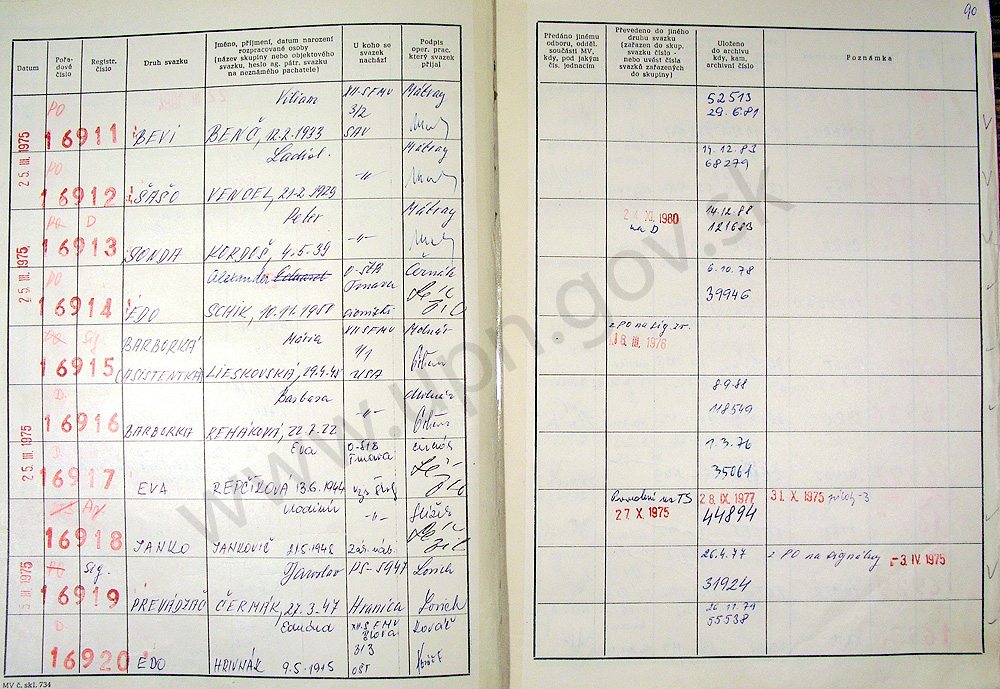 90
Datum
Pořadové číslo
Registr. číslo
Druh svazku
Jméno, příjmení, datum narození rozpracované osoby
(název skupiny nebo objektového svazku, heslo ag. pátr. svazku na neznámého pachatele)
U koho se svazek nachází
Podpis oper. prac. který svazek přijal
Předáno jinému odboru, odděl. součásti MV, kdy, pod jakým čís. jednacím
Převedeno do jiného druhu svazku (zařazen do skup. svazku číslo - nebo uvést čísla svazků zařazených do skupiny)
Uloženo do archivu kdy, kam, archivní číslo
Poznámka
25. III. 1975
PO
16911
BEVI
Viliam
BENČ, 12.2.1933
XII. S FMV
3/2
SAV
Mátray
52513
29.6.81
PO
16912
ŠAŠO
Ladisl.
VENDEL, 21.2.1929
-"-
Mátray
14.12.83
68279
25. III. 1975
PO D
16913
SONDA
Peter
KORDOŠ, 4.5.39
-"-
Mátray
24. XI. 1980
na D
14.12.88
121683
PO
16914
EDO
Alexander
SCHIK,
O-ŠTB
Trnava
Černák
6.10.78
39946
PO Sig.
16915
BARBORKÁ
(ASISTENTKA)
Mária
LIESKOVSKÁ, 19.4.45
XII. S FMV
1/1
USA
Molnár
z PO na sig. zv.
18. III. 1976
D.
16916
BARBORKA
Barbara
REHÁKOVÁ, 22.7.22
-"-
Molnár
8.9.88
118549
25. III. 1975
D.
16917
EVA
Eva
REPČÍKOVÁ 13.6.1944
O-ŠTB
Trnava
Černák
1.3.76
35061
16918
JANKO
Vladimír
JANKOVIČ 21.5.1948
-"-
na TS
27. X. 1975
28. IX. 1977
44894
31. X. 1975
III. 1975
PO Sig.
16919
PREVÁDZAČ
Jaroslav
ČERMÁK, 27.3.47
PS-5947
Hranica
Lovich
Lovich
26.4.77
31924
z PO na signálny
-3. IV. 1975
D.
16920
EDO
Edmund
HRIVNÁK 9.5.1915
XII. S FMV
3/3
OŠT
Kováč
26.11.79
55538
MV č. skl. 734
www.upn.gov.sk